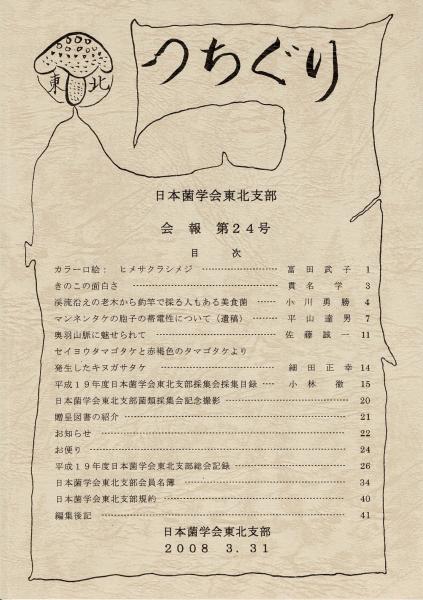 つちぐり
東北
日本菌学会東北支部
会報 第24号
目 次
カラー口絵: ヒメサクラシメジ ………… 富田武子 1
きのこの面白さ ………… 貫名学 3
渓流沿えの老木から釣竿で採る人もある美食菌 …… 小川勇勝 4
マンネンタケの胞子の帯電性について(遺稿) ………… 平山達男 7
奥羽山脈に魅せられて ………… 佐藤誠一 11
セイヨウタマゴタケと赤褐色のタマゴタケより
発生したキヌガサタケ ………… 細田正幸 14
平成19年度日本菌学会東北支部採集会採集目録 …… 小林徹 15
日本菌学会東北支部菌類採集会記念撮影 ………… 20
贈呈図書の紹介 ………… 21
お知らせ ………… 22
お便り ………… 24
平成19年度日本菌学会東北支部総会記録 ………… 26
日本菌学会東北支部会員名簿 ………… 34
日本菌学会東北支部規約 ………… 40
編集後記 ………… 41
日本菌学会東北支部
2008 3.31